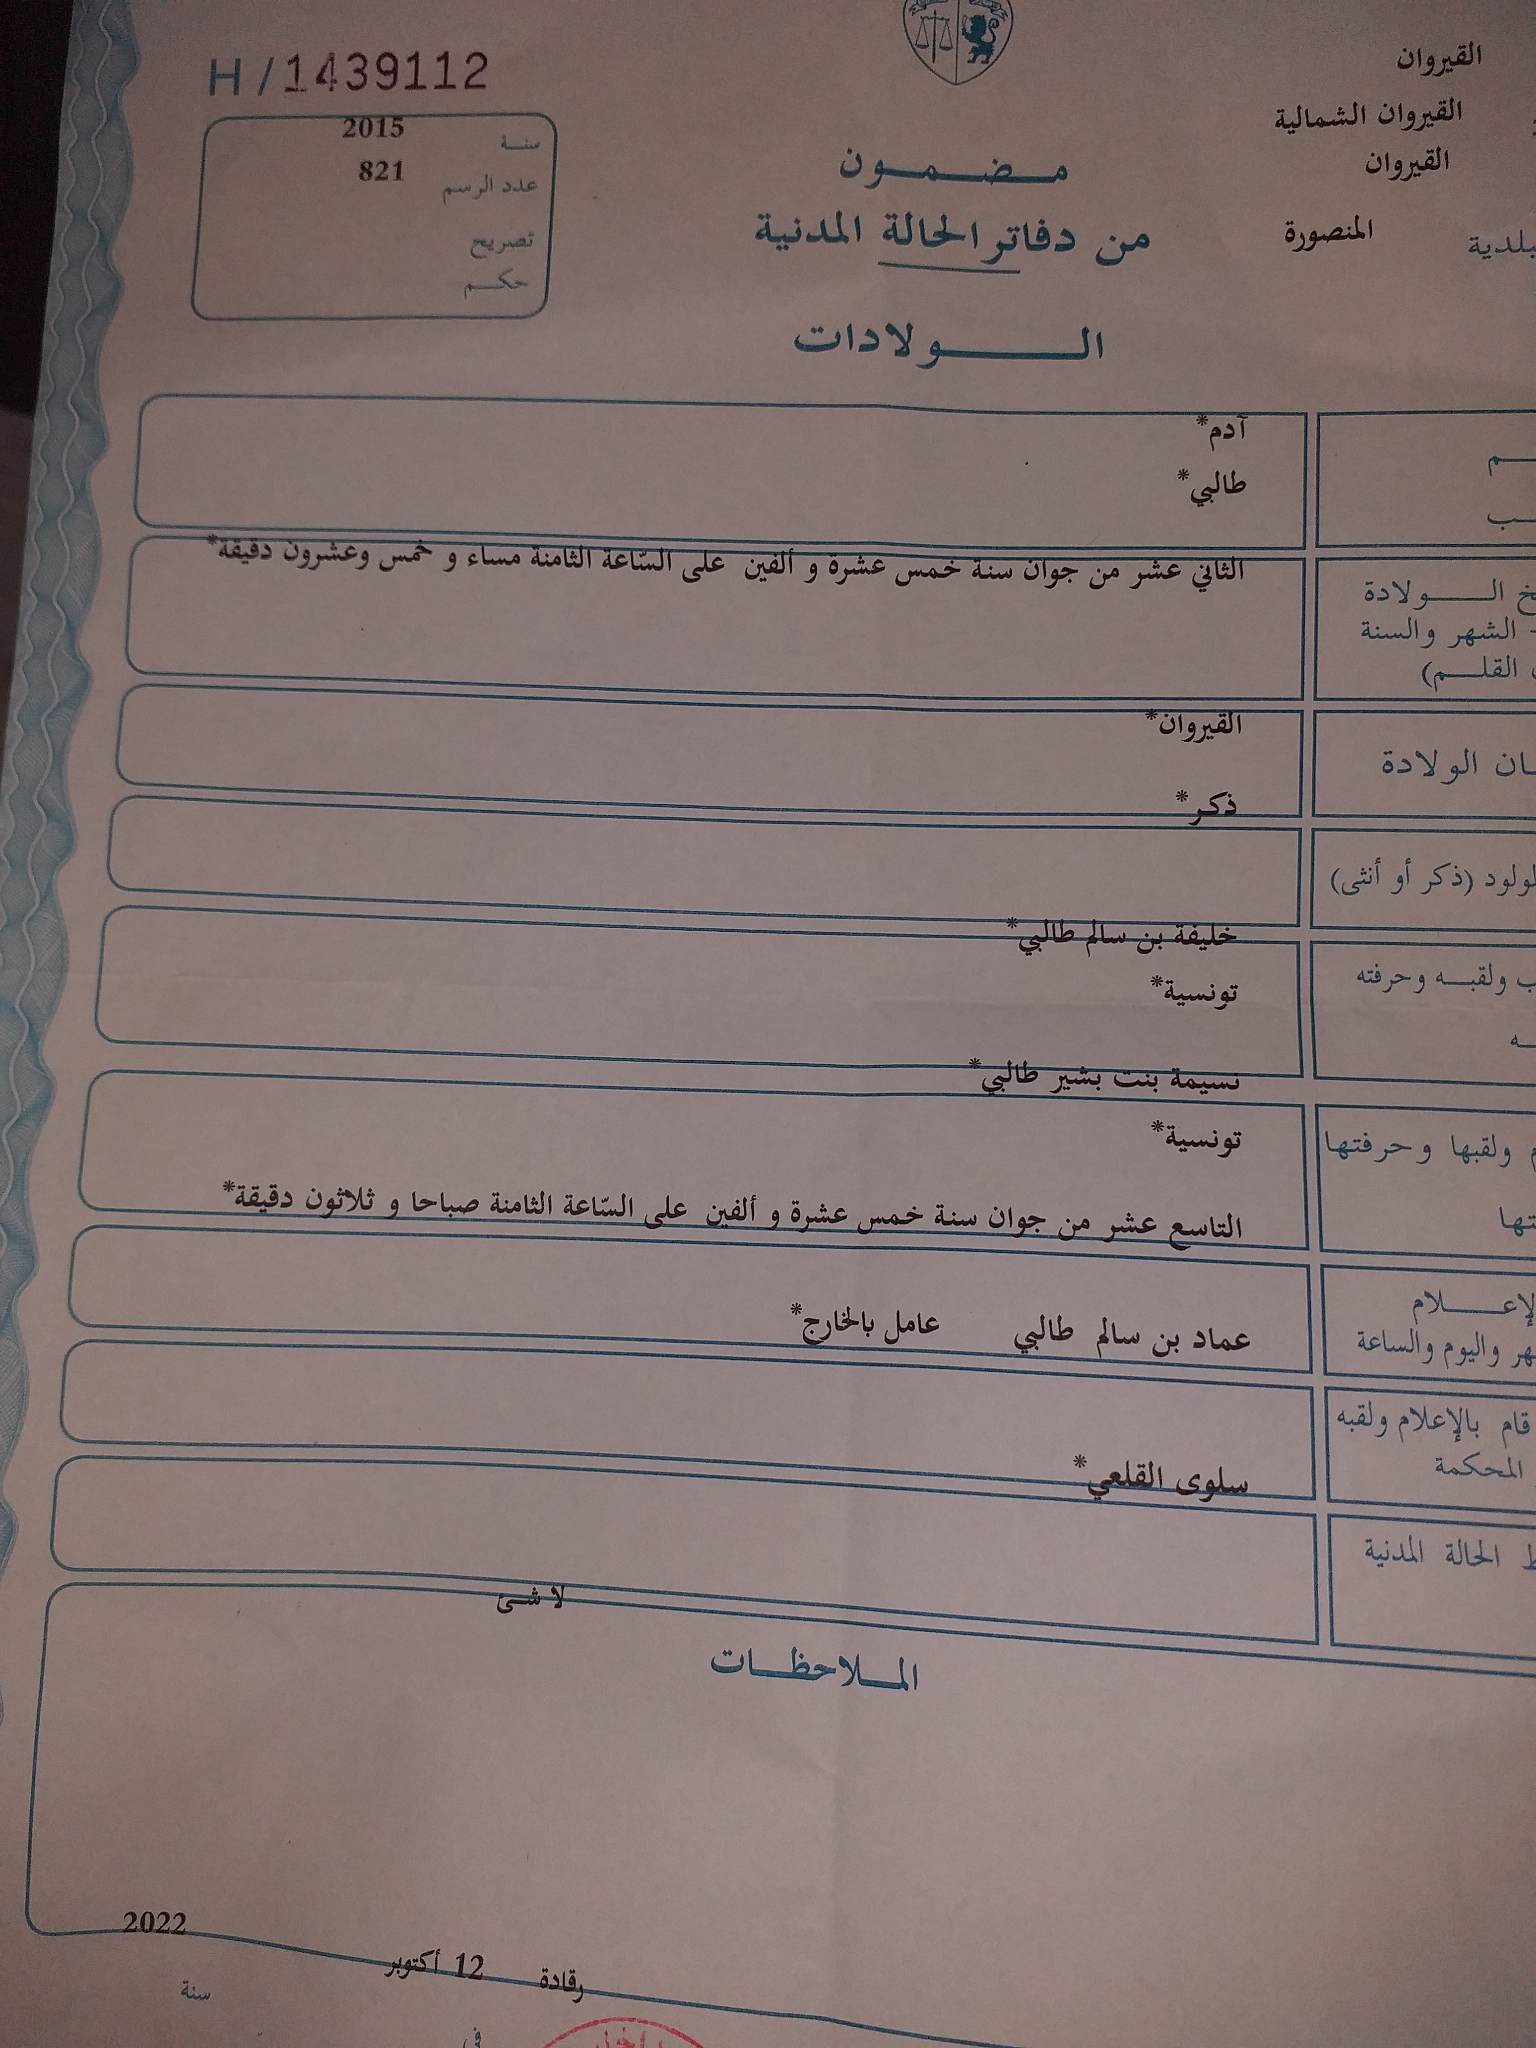 H / 1439112
القيروان
القيروان الشمالية
القيروان
بلدية المنصورة
سنة 2015
عدد الرسم 821
تصريح
حكم
مضمون
من دفاتر الحالة المدنية
الولادات
آدم*
طالبي*
الثاني عشر من جوان سنة خمس عشرة و ألفين على السّاعة الثامنة مساء و خمس وعشرون دقيقة*
الولادة
- الشهر والسنة
القلم)
القيروان*
الولادة
ذكر*
(ذكر أو أنثى)
خليفة بن سالم طالبي*
ولقبه وحرفته
تونسية*
نسيمة بنت بشير طالبي*
ولقبها وحرفتها
تونسية*
التاسع عشر من جوان سنة خمس عشرة و ألفين على السّاعة الثامنة صباحا و ثلاثون دقيقة*
واليوم والساعة
عماد بن سالم طالبي عامل بالخارج*
قام بالإعلام ولقبه
المحكمة
سلوى القلعي*
الحالة المدنية
لا شئ
الملاحظات
رقادة 12 أكتوبر 2022
في
سنة